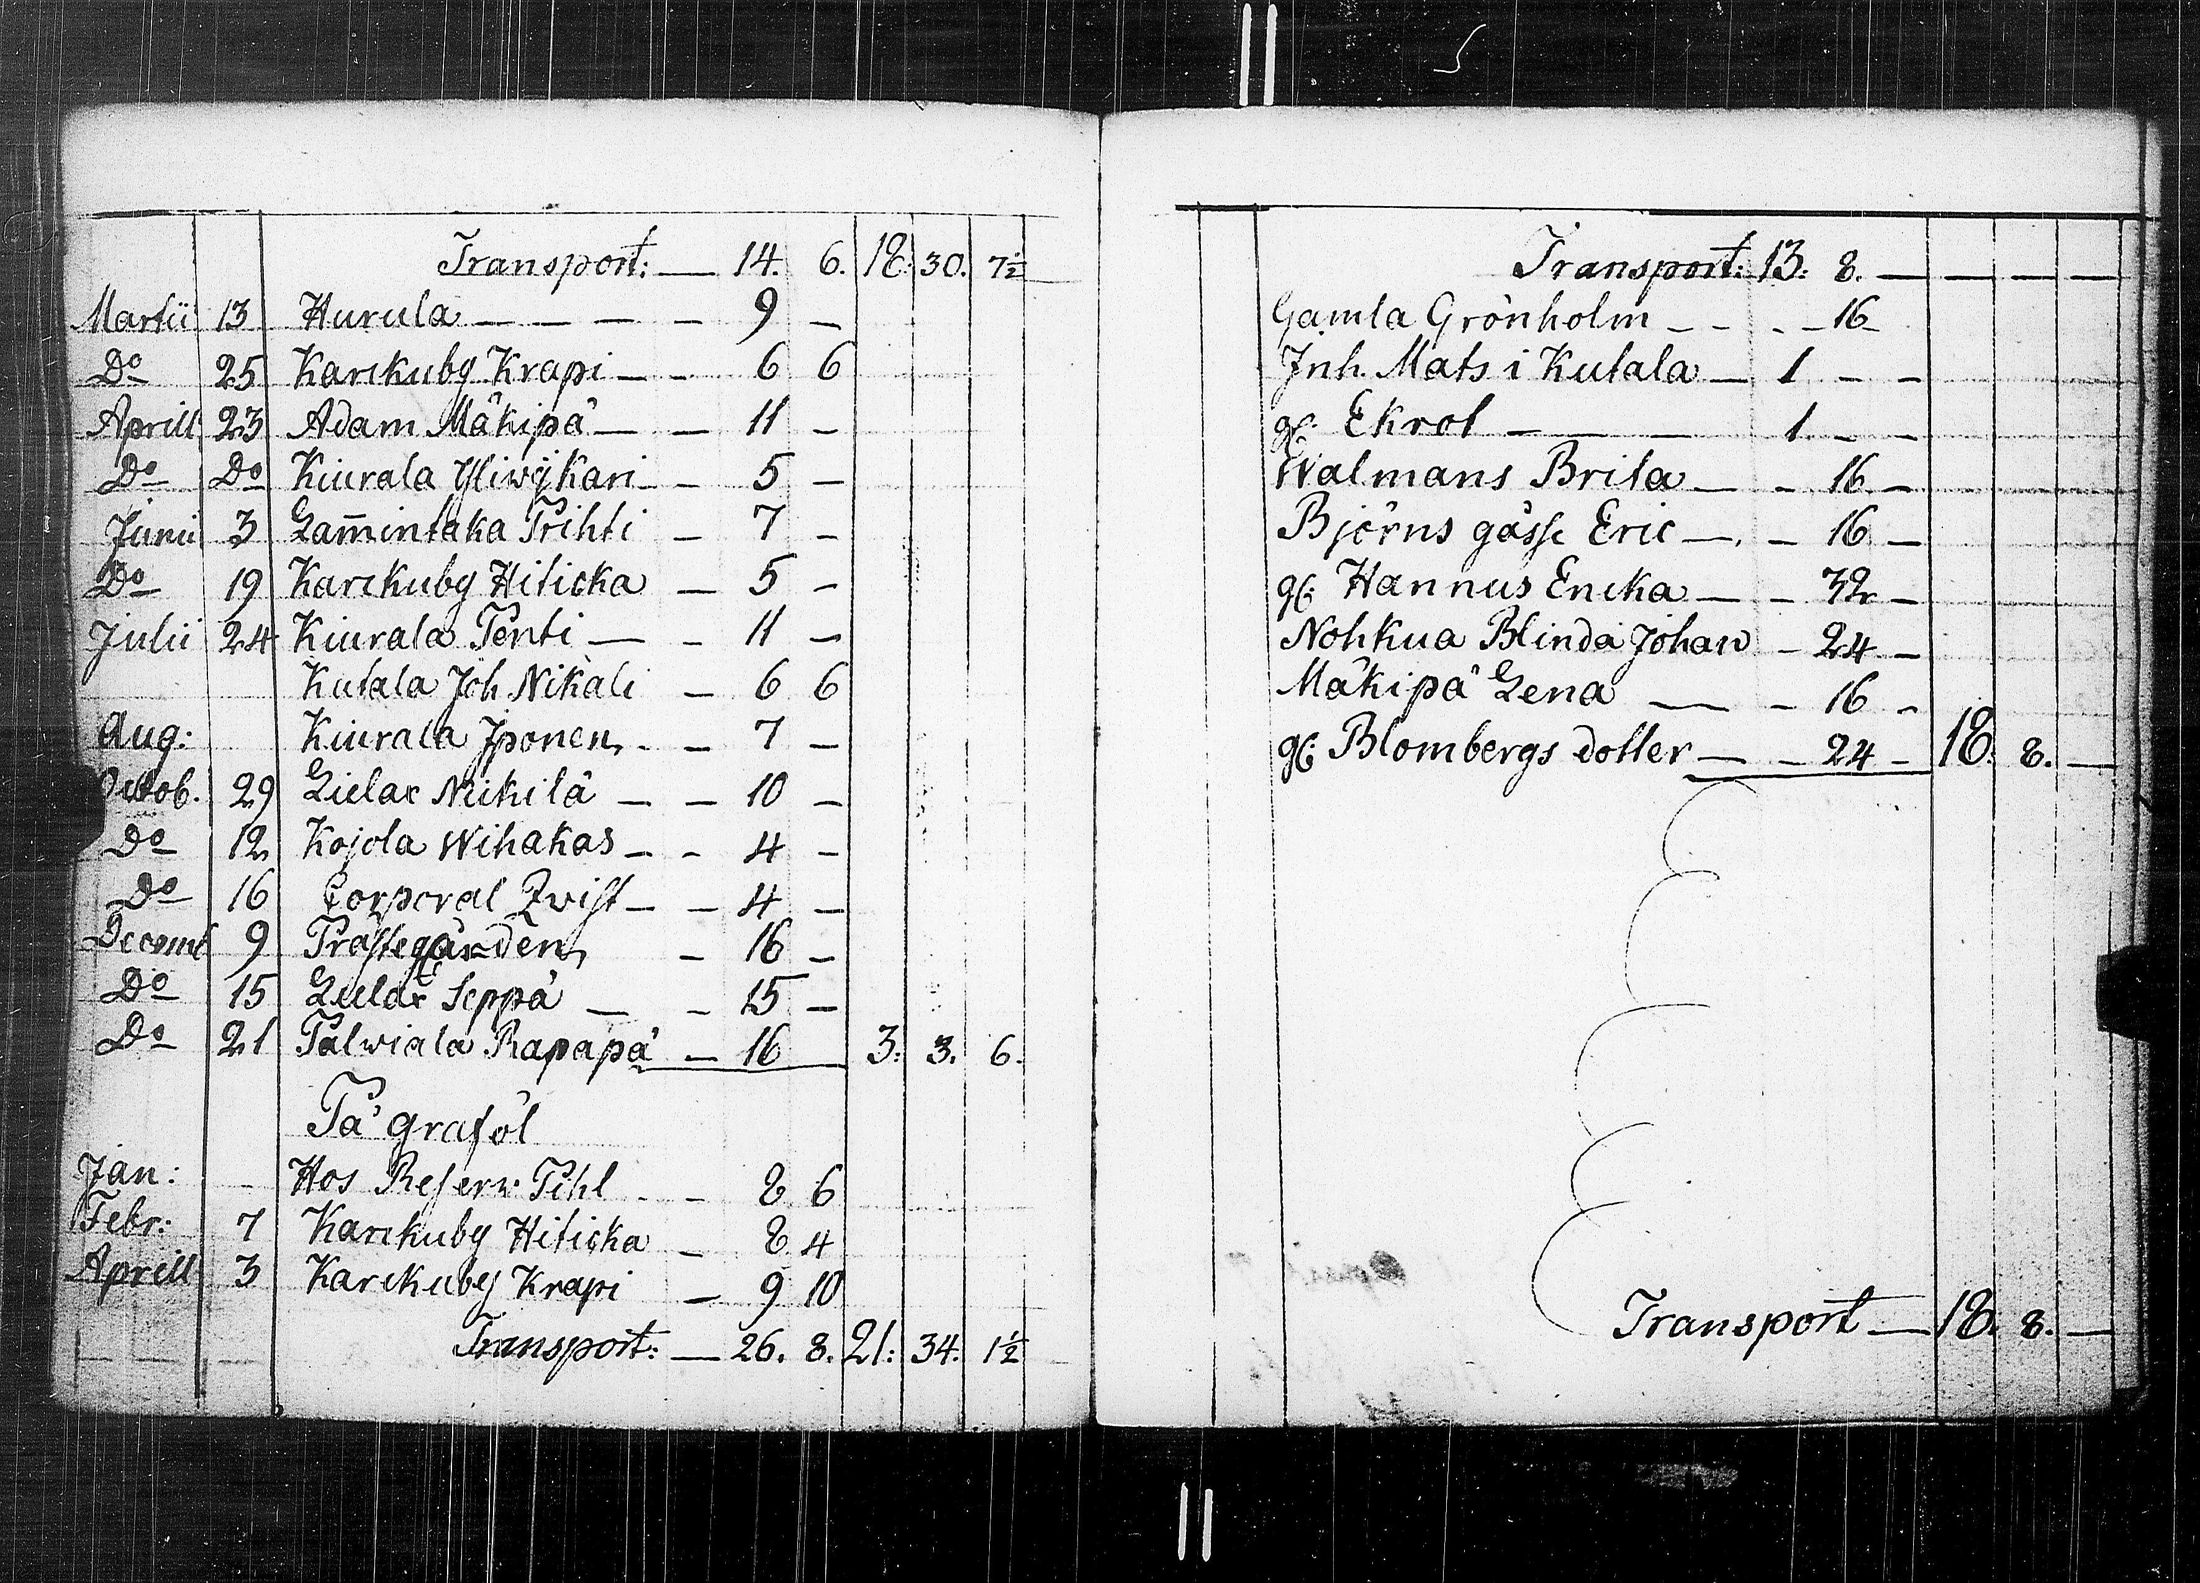 Transport: — 14. 6. 18. 30. 7½
Martii 13 Hurula — — — — 9 —
Do 25 Karckuby Krapi — — 6 6
Aprill 23 Adam Mäkipä — — 11 —
Do Do Kiurala Yliwÿkari — — 5 —
Junii 3 Lam̅intaka Prihti — 7 —
Do 19 Karckuby Hiticka — 5 —
Julii 24 Kiurala Penti — — 11 —
Kutala Joh Nikali — 6 6
Aug: Kiurala Jponen — — 7 —
Octob. 29 Lielax Neikilä — — 10 —
Do 12 Kojola Wihakas — — 4 —
Do 16 Corporal Qvist — — 4 —
Decemb 9 Prästegården — 16 —
Do 15 Lielax Seppä — — 15 —
Do 21 Palwiala Rapapä — 16 3: 3. 6.
På grafööl
Jan: — Hos Reserw Pihl — — 8 6
Febr: 7 Karckuby Hiticka — 8 4
Aprill 3 Karckuby Krapi — 9 10
Transport: — 26. 8. 21: 34. 1½
Transport: 13: 8. — — — —
Gamla Grönholm — — — — 16 —
Jnh. Mats i Kutala — 1 — —
gl: Ekrot — — — 1 — —
Walmans Brita — — 16 —
Björns gåsse Eric — — 16 —
gl: Hannus Ericka — — 32 —
Nohkua Blinda Johan — 24 —
Mäkipä Lena — — 16 —
gl: Blombergs dotter — — 24 — 18. 8. —
Transport — 18. 8. —